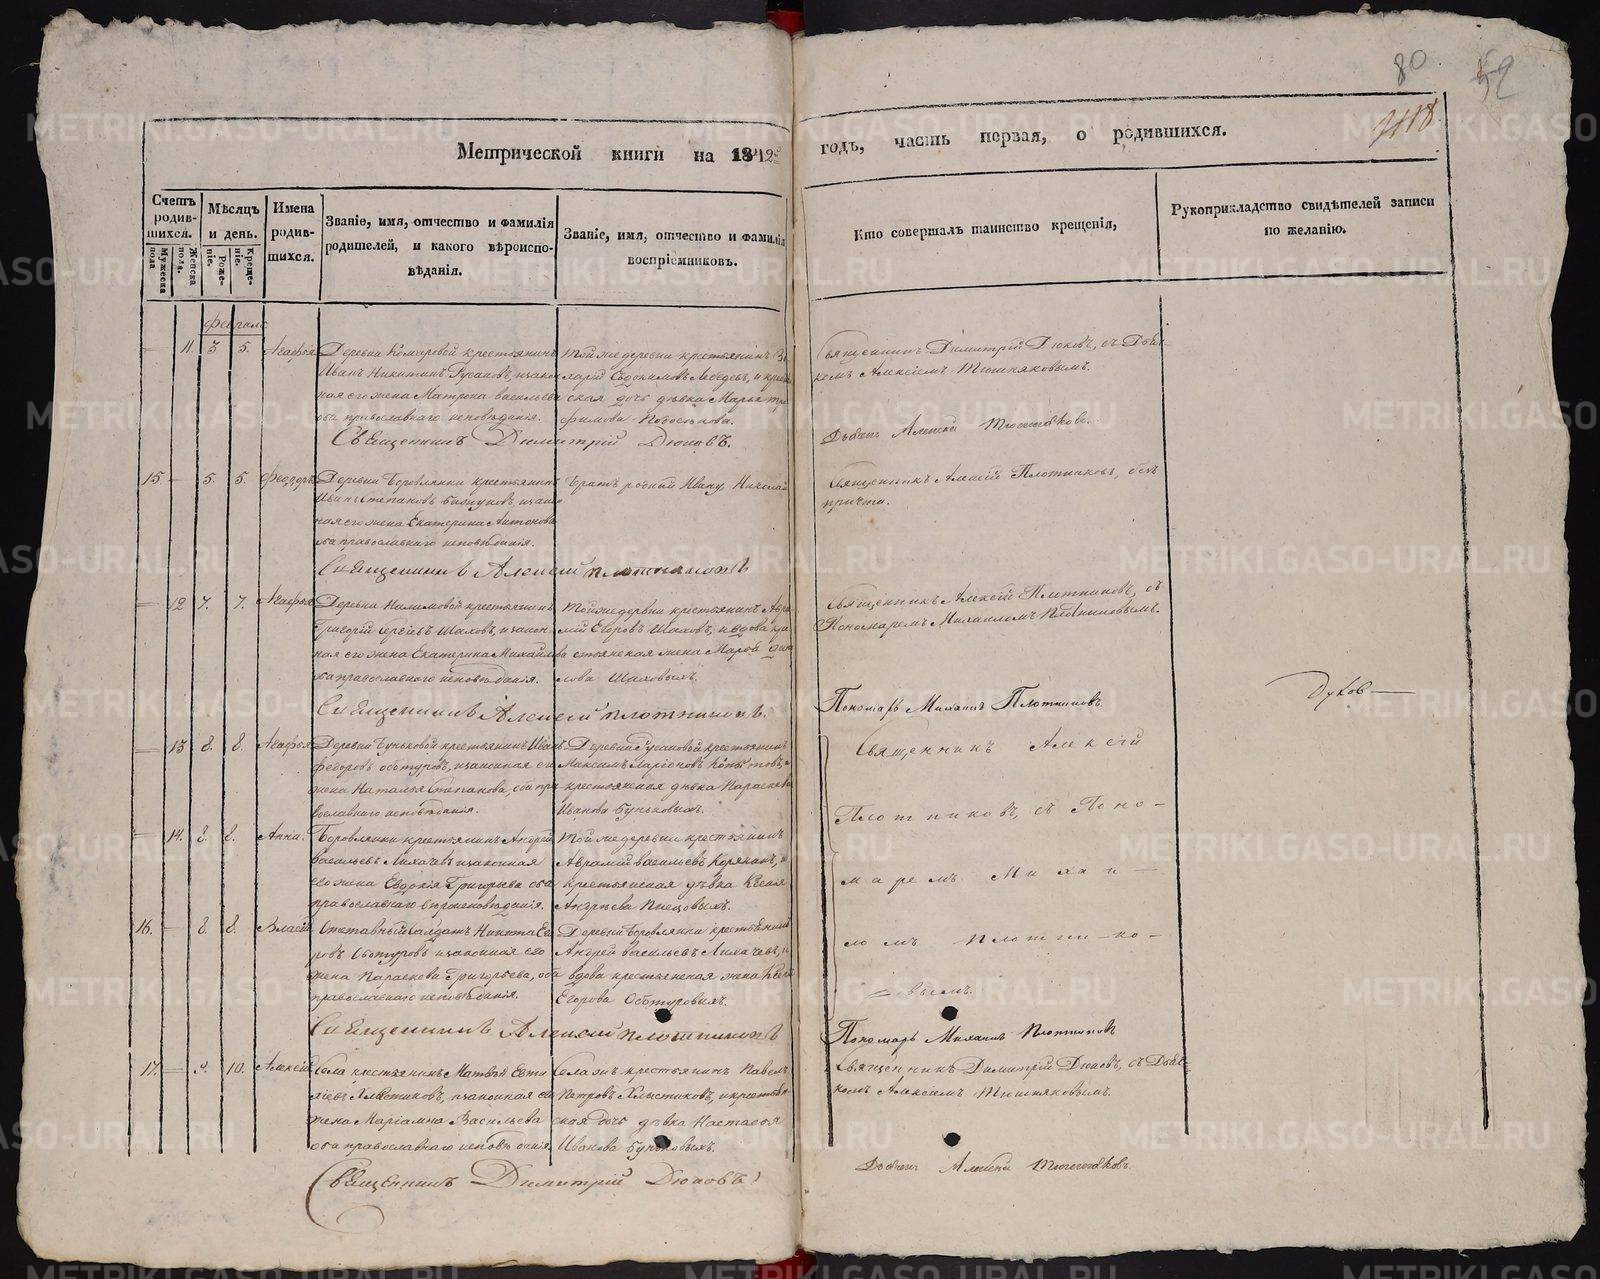 80
52
7118
Метрической книги на 1842й
годъ, часть первая, о родившихся.
Счетъ родив-шихся.
Мужеска пола
Женска пола.
Мѣсяцъ и день.
Рожде-ніе.
Креще-ніе.
Имена родив-шихся.
Званіе, имя, отчество и фамилія
родителей, и какого вѣроиспо-
вѣданія.
Званіе, имя, отчество и фамилія
воспріемниковъ.
Кто совершалъ таинство крещенія,
Рукоприкладство свидѣтелей записи
по желанію.
Февраля
11. 3 5. Агафья
Деревни Комаровой крестьянинъ
Иванъ Никитинъ Русановъ, и закон
ная его жена Матрона Васильева
оба православнаго исповѣданія.
Той же деревни крестьянинъ За
харій Евдокимовъ Лебедевъ, и крестьян
ская дочь дѣвка Марья Тро
фимова
Священникъ Димитрій Дюковъ, съ Дьяч
комъ Алексіемъ Тюшняковымъ.
Священникъ Димитрій Дюковъ.
Дьячекъ Алексей Тюшняковъ.
15 — 5. 5. Феодоръ
Деревни Боровлянки крестьянинъ
Иванъ Степановъ и закон
ная его жена Екатерина Антонова
оба православнаго исповѣданія.
Братъ родный Ивану Николай
Священникъ Алексій Плотниковъ, безъ
причта.
Священникъ Алексей Плотниковъ
— 12 7. 7. Агафья
Деревни Налимовой крестьянинъ
Григорій Сергіевъ Шаховъ, и закон
ная его жена Екатерина Михайлова
оба православнаго исповѣданія.
Той же деревни крестьянинъ Авра
мій Егоровъ Шаховъ, и вдова кре
стьянская жена Марѳа
лова Шаховыхъ.
Священникъ Алексій Плотниковъ, съ
Пономаремъ Михаиломъ Плотниковымъ.
Священникъ Алексей Плотниковъ.
Пономарь Михаилъ Плотниковъ
Дуков
— 13 8. 8. Агафья
Деревни Буньковой крестьянинъ Иванъ
Федоровъ Обатуровъ, и законная его
жена Наталья Степанова, оба пра
вославнаго исповѣданія.
Деревни Русановой крестьянинъ
Максимъ Ларіоновъ Копытовъ, и
крестьянская дѣвка Параскева
Иванова Буньковыхъ.
Священникъ Алексій
Плотниковъ, съ Поно-
маремъ Михаи-
ломъ Плотнико-
вымъ.
— 14. 8. 8. Анна.
Боровлянки крестьянинъ Андрей
Васильевъ Лихачевъ и законная
его жена Евдокія Григорьева оба
православнаго вѣроисповѣданія.
Той же деревни крестьянинъ
Аврамій Васильевъ Корякинъ, и
крестьянская дѣвка Ксенія
Андреева
16. — 8. 8. Власій
Отставный салдатъ Никита Его
ровъ Обатуровъ и законная его
жена Параскева Григорьева, оба
православнаго исповѣданія.
Деревни Боровлянки крестьянинъ
Андрей Васильевъ Лихачевъ, и
вдова крестьянская жена
Егорова Обатуровыхъ.
Священникъ Алексей Плотниковъ
Пономарь Михаилъ Плотниковъ
17. — 9. 10. Алексій
Села крестьянинъ Матвѣй Евти
хіевъ Хлыстиковъ, и законная его
жена Маріамна Васильева
оба православнаго исповѣданія.
Села энъ крестьянинъ Павелъ
Петровъ Хлыстиковъ, и крестьян
ская дочь дѣвка Настасья
Иванова Буньковыхъ.
Священникъ Димитрій Дюковъ, съ Дьяч-
комъ Алексіемъ Тюшняковымъ.
Священникъ Димитрій Дюковъ
Дьячекъ Алексей Тюшняковъ.
METRIKI.GASO-URAL.RU